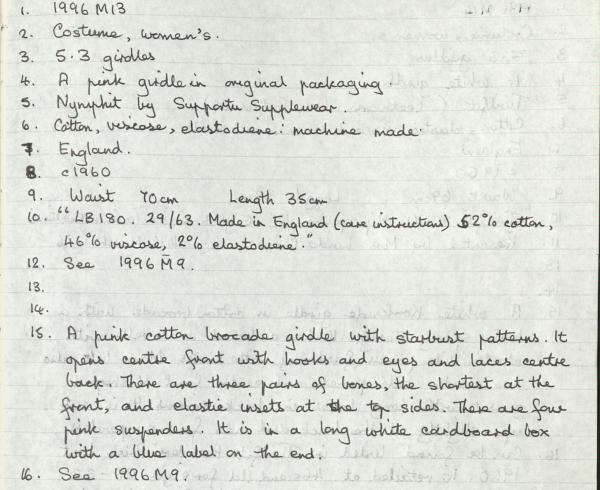 1. 1996 M13
2. Costume, women's.
3. 5.3 girdles
4. A pink girdle in original packaging.
5. Nymphit by Supporta Supplewear.
6. Cotton, viscose, elastodiene: machine made.
7. England.
8. c1960
9. Waist 70cm Length 35cm
10. "LB180. 29/63. Made in England (care instructions) 52% cotton,
46% viscose, 2% elastodiene."
12. See 1996 M9.
13.
14.
15. A pink cotton brocade girdle with starbust patterns. It
opens centre front with hooks and eyes and laces centre
back. There are three pairs of bones, the shortest at the
front, and elastic insets at the top sides. There are four
pink suspenders. It is in a long white cardboard box
with a blue label on the end.
16. See 1996 M9.